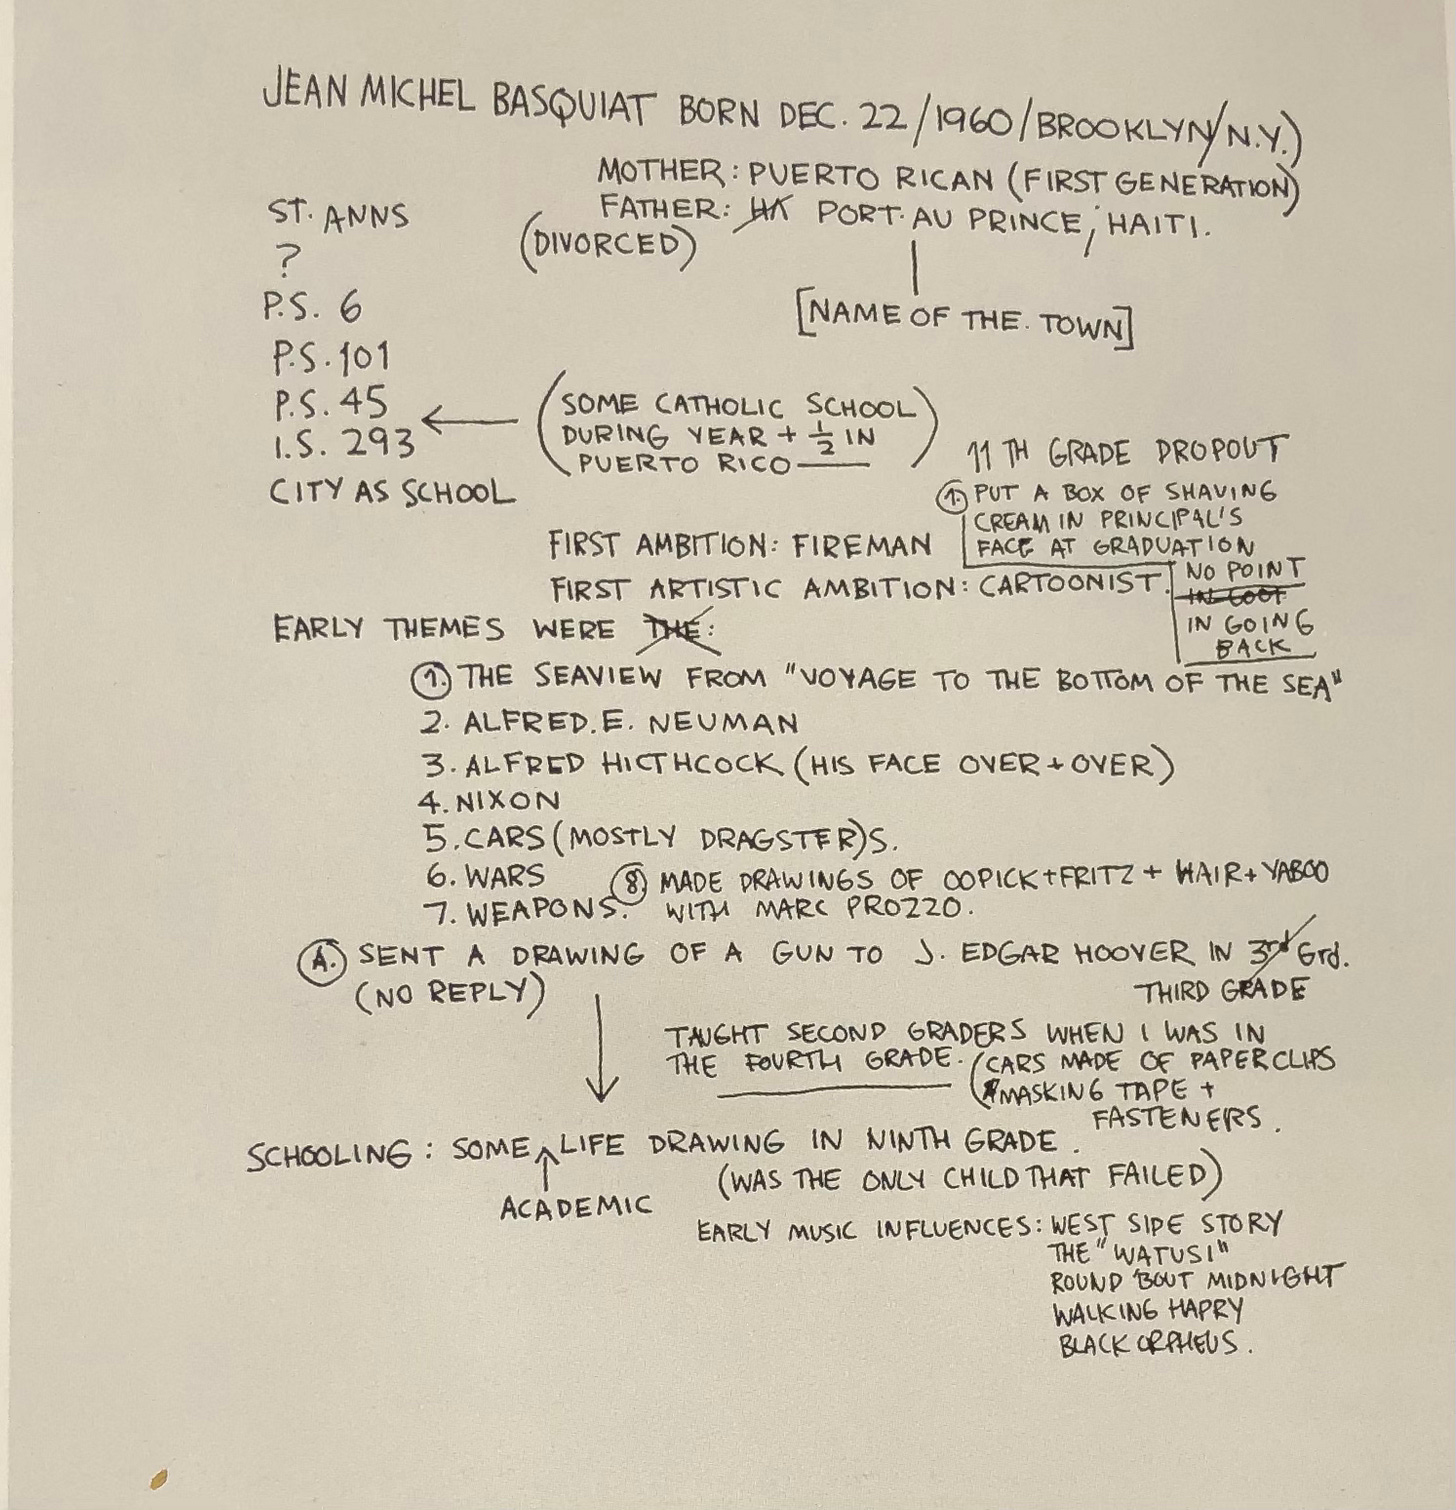 JEAN MICHEL BASQUIAT BORN DEC. 22/1960/BROOKLYN/N.Y.)
MOTHER: PUERTO RICAN (FIRST GENERATION)
FATHER: PORT. AU PRINCE, HAITI.
(DIVORCED)
[NAME OF THE. TOWN]
ST. ANNS
?
P.S. 6
P.S. 101
P.S. 45
I.S. 293
CITY AS SCHOOL
(SOME CATHOLIC SCHOOL)
DURING YEAR + 1/2 IN
PUERTO RICO
11 TH GRADE DROPOUT
1. PUT A BOX OF SHAVING
CREAM IN PRINCIPAL'S
FACE AT GRADUATION
NO POINT
IN GOING
BACK
FIRST AMBITION: FIREMAN
FIRST ARTISTIC AMBITION: CARTOONIST.
EARLY THEMES WERE THE:
1. THE SEAVIEW FROM "VOYAGE TO THE BOTTOM OF THE SEA"
2. ALFRED.E. NEUMAN
3. ALFRED HICTHCOCK (HIS FACE OVER + OVER)
4. NIXON
5. CARS (MOSTLY DRAGSTER)S.
6. WARS
7. WEAPONS.
8 MADE DRAWINGS OF OOPICK+FRITZ + HAIR+YABOO
WITH MARC PROZZO.
A. SENT A DRAWING OF A GUN TO J. EDGAR HOOVER IN 3rd Grd.
(NO REPLY)
THIRD GRADE
TAUGHT SECOND GRADERS WHEN I WAS IN
THE FOURTH GRADE. (CARS MADE OF PAPERCLIPS
MASKING TAPE +
FASTENERS.
SCHOOLING: SOME LIFE DRAWING IN NINTH GRADE.
ACADEMIC
(WAS THE ONLY CHILD THAT FAILED)
EARLY MUSIC INFLUENCES: WEST SIDE STORY
THE "WATUSI"
ROUND 'BOUT MIDNIGHT
WALKING HAPPY
BLACK ORPHEUS.